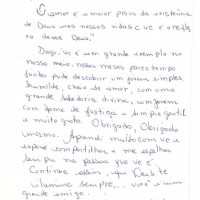 "O amor é a maior prova da existência
de Deus em nossas vidas e vc é o refle
xo desse Deus."
Dogo, vc é um grande exemplo no
nosso meio, nesses meses pouco tempo
juntos pude descobrir um jovem simples,
humilde, cheio de amor, com uma
grande sabedoria divina, um jovem
com fome de justiça e sempre gentil
e muito grato. Obrigado, Obrigado
mesmo. Aprendi muito com vc e
espero compartilhar e me espelhar
sempre na pessoa que vc é.
Continue assim, que Deus te
ilumine sempre... você é um
grande amigo